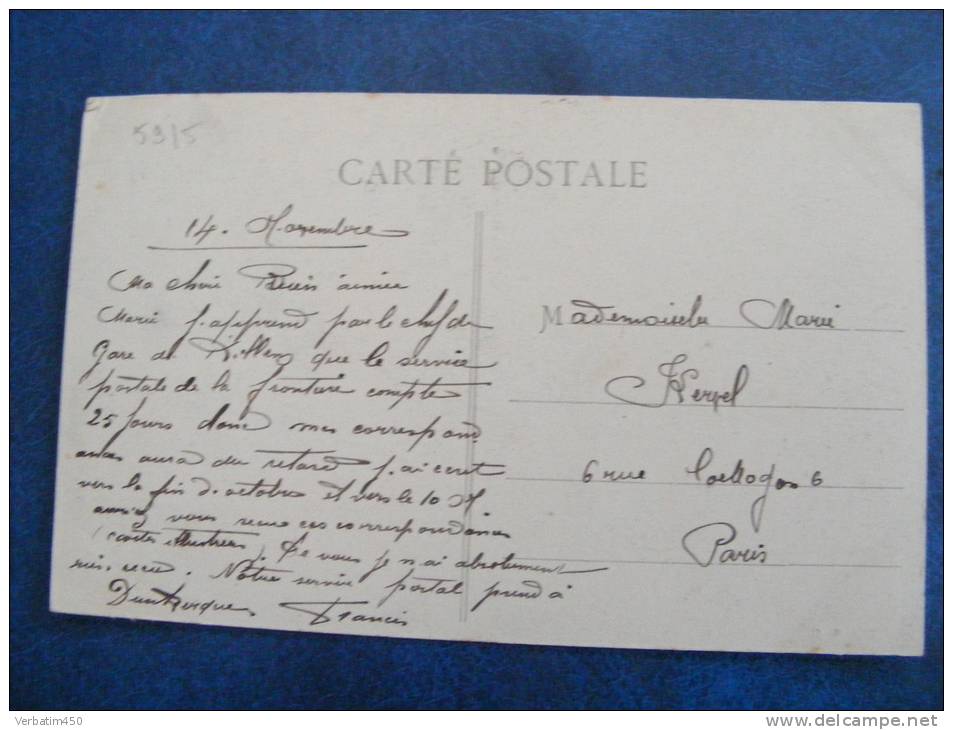 59/5
CARTE POSTALE
14. Novembre
Ma cheri Bien aimée
Marie j'apprend par le chef de
Gare de que le service
postale de la frontiere compte
25 Jours donc mes correspond
ances aura du retard j'ai ecrit
vers la fin d'octobre et vers le 10 9
vous recu ces correspondances
(cartes illustrees). De vous je n'ai absolument
rien recu. Notre service postal prend a
Dunkerque. Francis
Mademoiselle Marie
6 rue 6
Paris
Verbatim450
www.delcampe.net